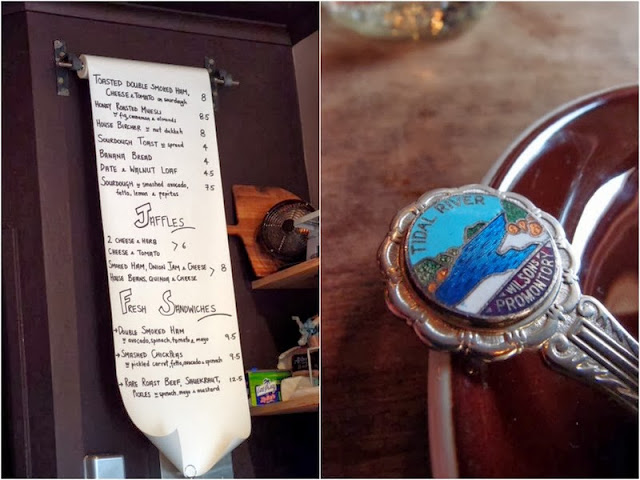 TOASTED DOUBLE SMOKED HAM,
CHEESE & TOMATO on sourdough 8
HONEY ROASTED MUESLI
w fig, cinnamon & almonds 8.5
HOUSE BIRCHER w nut dukkah 8
SOURDOUGH TOAST w spread 4
BANANA BREAD 4
DATE & WALNUT LOAF 4.5
SOURDOUGH w smashed avocado, 7.5
fetta, lemon & pepitas
JAFFLES
2 CHEESE & HERB
CHEESE & TOMATO > 6
SMOKED HAM, ONION JAM & CHEESE > 8
HOUSE BEANS, QUINOA & CHEESE
FRESH SANDWICHES
DOUBLE SMOKED HAM
w avocado, spinach, tomato & mayo 9.5
SMASHED CHICKPEAS
w pickled carrot, fetta, avocado & spinach 9.5
RARE ROAST BEEF, SAUERKRAUT, 12.5
PICKLES w spinach, mayo & mustard
TIDAL RIVER
WILSONS
PROMONTORY